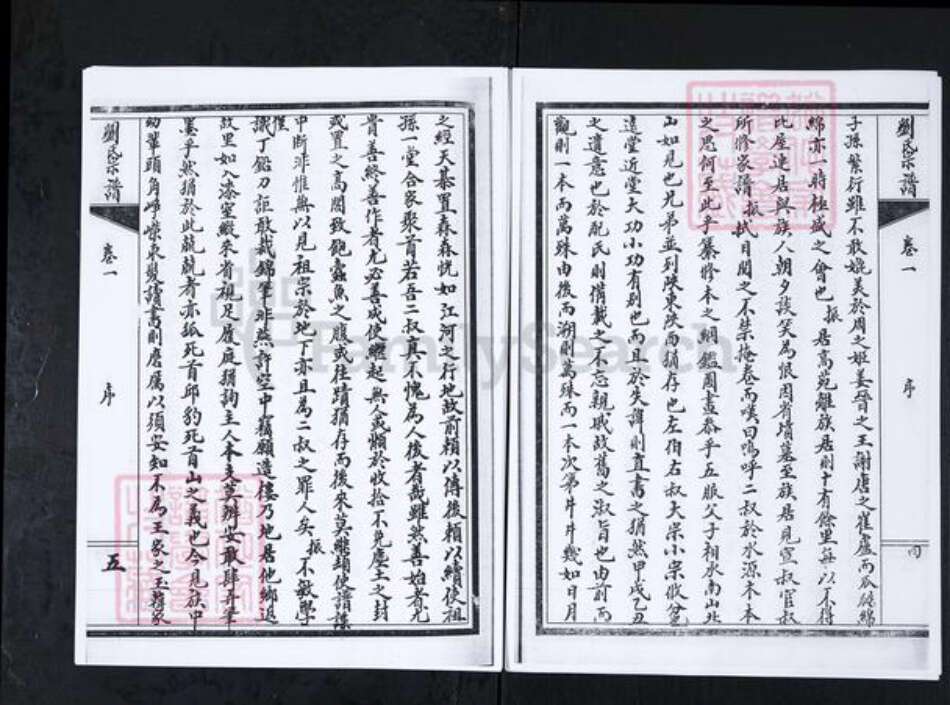 劉氏宗譜
卷一
序
子孫繁衍雖不敢媲美於周之姬姜晉之王謝唐之崔盧而瓜瓞綿
綿亦一時極盛之會也振居高苑離族居則十有餘里每以不得
比屋連居與族人朝夕談笑為恨因省墳墓至族居見宣叔官叔
所修家譜振拭目閱之不禁掩卷而嘆曰嗚呼二叔於水源木本
之思何至此乎纂修本之綱鑑周盡參乎五服父子相承南山北
山如見也兄弟並列陝東陝西猶存也左伯右叔大宗小宗
遠堂近堂大功小功有別也而且於失諱則直書之猶然甲戌乙丑
之遺意也於配氏則備載之不忘親戚故舊之淑旨也由前而
觀則一本而萬殊由後而溯則萬殊而一本次第井井幾如日月
之經天昴置森森恍如江河之行地故前賴以傳後賴以續使祖
孫一堂合家聚首若吾二叔真不愧為人後者哉雖然善始者尤
貴善終善作者尤必善成使繼起無人或懶於收拾不免塵土之封
或置之高閣致飽蠹魚之腹或往蹟猶存而後來莫繼頓使譜牒
中斷非惟無以見祖宗於地下亦且為二叔之罪人矣振不敏學
慚識丁鉛刀詎敢裁錦筆非燕許空中竊願造樓乃地居他鄉返
故里如入漆室縱朱省視足履庭猶詢主人本支莫辨安敢肆弄筆
墨乎然猶於此兢兢者亦狐死首邱豹死首山之義也今見族中
幼輩頭角崢嶸束髮讀書則磨厲以須安知不為王家之玉蔣家
劉氏宗譜
卷一
序
五
FamilySearch